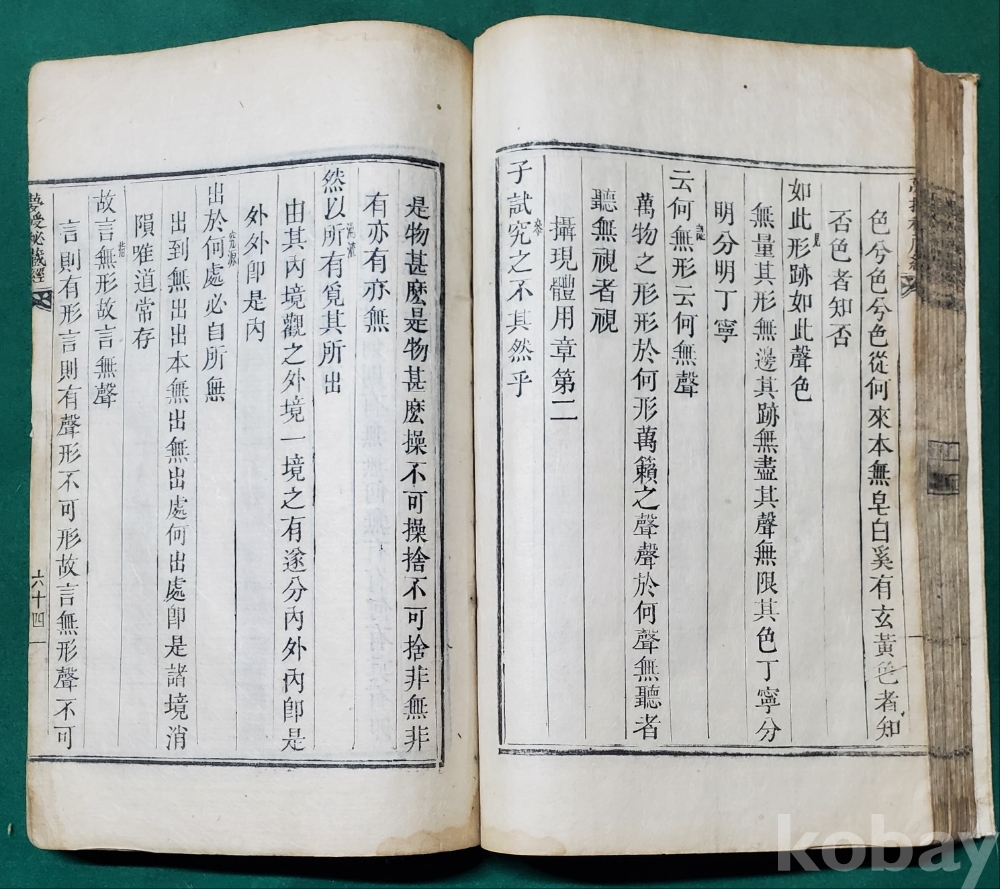 色兮色兮色從何來本無皂白奚有玄黃色者知
否色者知否
見
如此形跡如此聲色
無量其形無邊其跡無盡其聲無限其色丁寧分
明分明丁寧
云何無形云何無聲
萬物之形形於何形萬籟之聲聲於何聲無聽者
聽無視者視
攝現體用章第二
參
子試究之不其然乎
是物甚麽是物甚麽操不可操捨不可捨非無非
有亦有亦無
然以所有覓其所出
由其內境觀之外境一境之有遂分內外內卽是
外外卽是內
究源
出於何處必自所無
出到無出出本無出無出處何出處卽是諸境消
隕唯道常存
故言無形故言無聲
言則有形言則有聲形不可形故言無形聲不可
夢授秘藏經
六十四
kobay